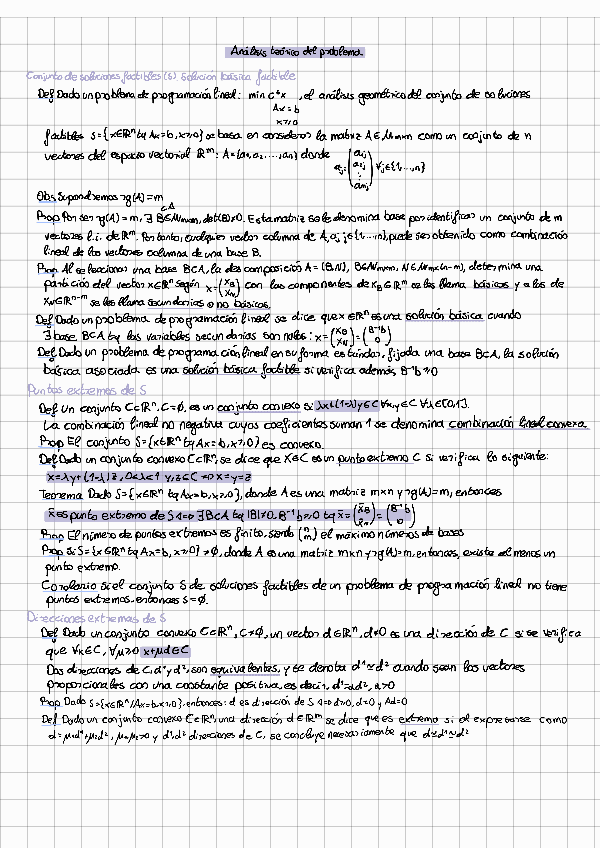 Análisis teórico del problema
Conjunto de soluciones factibles (S). Solución básica factible
Def Dado un problema de programación lineal: min cᵗx , el análisis geométrico del conjunto de soluciones
Ax=b
x≥0
factibles S={x∈ℝⁿ tq Ax=b, x≥0} se basa en considerar la matriz A∈Mmxn como un conjunto de n
vectores del espacio vectorial ℝᵐ: A=(a₁,a₂,...,aₙ) donde aj=(a1j a2j ⋮ amj) ∀j∈{1,...,n}
Obs Supondremos rg(A)=m
Prop Por ser rg(A)=m, ∃ B∈Mmxm, det(B)≠0. Esta matriz se le denomina base por identificar un conjunto de m
vectores l.i. de ℝᵐ. Por tanto, cualquier vector columna de A, aj, j∈{1,...,n}, puede ser obtenido como combinación
lineal de los vectores columna de una base B.
Prop Al seleccionar una base B⊂A, la descomposición A=(B,N), B∈Mmxm, N∈Mmx(n-m), determina una
partición del vector x∈ℝⁿ según x=(xB xN) con las componentes de xB∈ℝᵐ se les llama básicas, y a las de
xN∈ℝⁿ⁻ᵐ se les llama secundarias o no básicas.
Def Dado un problema de programación lineal se dice que x∈ℝⁿ es una solución básica cuando
∃ base B⊂A tq las variables secundarias son nulas: x=(xB xN)=(B⁻¹b 0)
Def Dado un problema de programación lineal en su forma estándar, fijada una base B⊂A, la solución
básica asociada es una solución básica factible si verifica además, B⁻¹b≥0
Puntos extremos de S
Def Un conjunto C⊂ℝⁿ, C≠∅, es un conjunto convexo si λx+(1-λ)y∈C ∀x,y∈C ∀λ∈[0,1].
La combinación lineal no negativa cuyos coeficientes suman 1 se denomina combinación lineal convexa.
Prop El conjunto S={x∈ℝⁿ tq Ax=b, x≥0} es convexo.
Def Dado un conjunto convexo C⊂ℝⁿ, se dice que x∈C es un punto extremo C si verifica lo siguiente:
x=λy+(1-λ)z, 0<λ<1 y,z∈C ⇒ x=y=z
Teorema Dado S={x∈ℝⁿ tq Ax=b, x≥0}, donde A es una matriz mxn y rg(A)=m, entonces
x̄ es punto extremo de S ⇔ ∃B⊂A tq |B|≠0, B⁻¹b≥0 tq x̄=(x̄B x̄N)=(B⁻¹b 0)
Prop El número de puntos extremos es finito, siendo (n m) el máximo números de bases
Prop Si S={x∈ℝⁿ tq Ax=b, x≥0}≠∅, donde A es una matriz mxn y rg(A)=m, entonces, existe al menos un
punto extremo.
Corolario Si el conjunto S de soluciones factibles de un problema de programación lineal no tiene
puntos extremos, entonces S=∅.
Direcciones extremas de S
Def Dado un conjunto convexo C⊂ℝⁿ, C≠∅, un vector d∈ℝⁿ, d≠0 es una dirección de C si se verifica
que ∀x∈C, ∀μ≥0 x+μd∈C
Dos direcciones de C, d¹ y d², son equivalentes, y se denota d¹≈d² cuando sean los vectores
proporcionales con una constante positiva, es decir, d¹=αd², α>0
Prop Dado S={x∈ℝⁿ/Ax=b, x≥0}, entonces: d es dirección de S ⇔ d≥0, d≠0 y Ad=0
Def Dado un conjunto convexo C⊂ℝⁿ, una dirección d∈ℝⁿ se dice que es extrema si al expresarse como
d=μ₁d¹+μ₂d², μ₁,μ₂>0 y d¹,d² direcciones de C, se concluye necesariamente que d≈d¹≈d²